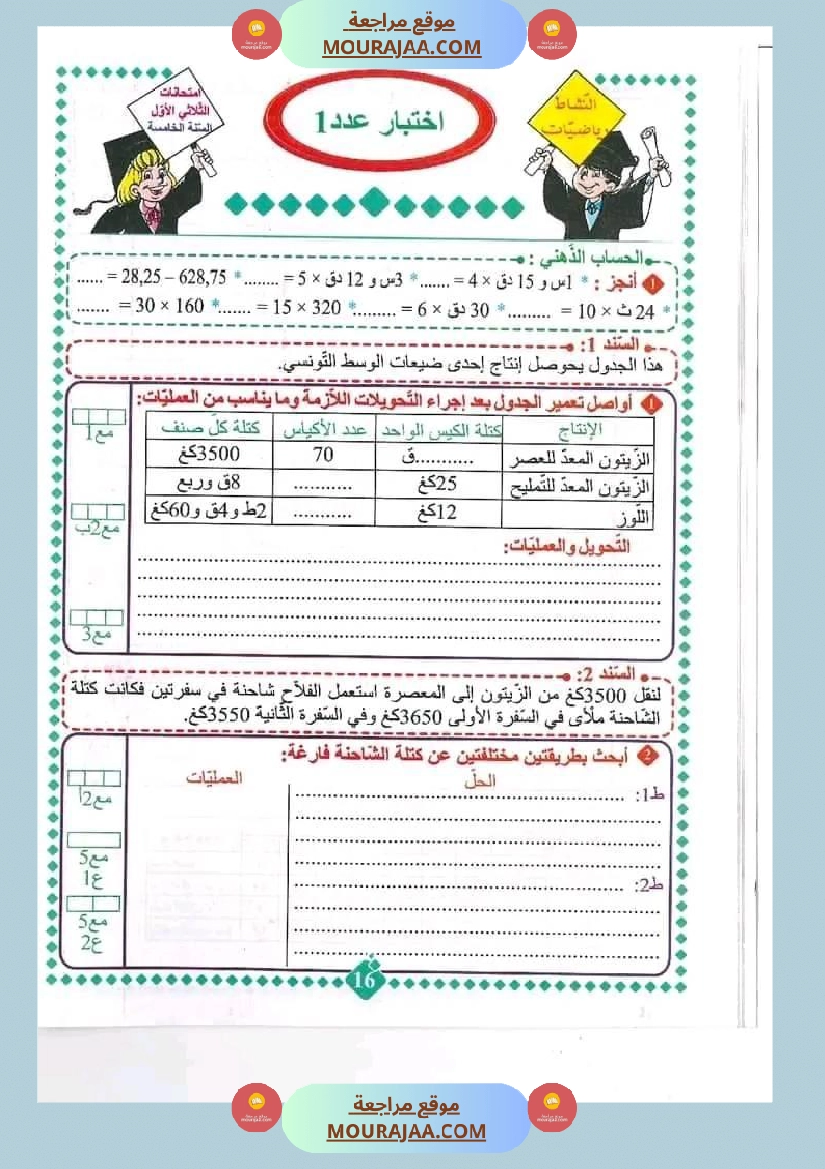 موقع مراجعة
MOURAJAA.COM
امتحانات
الثّلاثي الأوّل
السّنة الخامسة
اختبار عدد1
النّشاط
رياضيّات
الحساب الذّهني :
1 أنجز : * 1س و 15 دق × 4 = ....... * 3س و 12 دق × 5 = ........ * 628,75 – 28,25 = ......
* 24 ث × 10 = .......... * 30 دق × 6 = .......... * 320 × 15 = ....... * 160 × 30 = .......
السّند 1:
هذا الجدول يحوصل إنتاج إحدى ضيعات الوسط التّونسي.
1 أواصل تعمير الجدول بعد إجراء التّحويلات اللاّزمة وما يناسب من العمليّات:
مع1
الإنتاج كتلة الكيس الواحد عدد الأكياس كتلة كلّ صنف
الزّيتون المعدّ للعصر ...........ق 70 3500كغ
الزّيتون المعدّ للتّمليح 25كغ ........... 8ق وربع
اللّوز 12كغ ........... 2ط و4ق و60كغ
مع2ب
التّحويل والعمليّات:
مع3
السّند 2:
لنقل 3500كغ من الزّيتون إلى المعصرة استعمل الفلاّح شاحنة في سفرتين فكانت كتلة
الشّاحنة ملأى في السّفرة الأولى 3650كغ وفي السّفرة الثّانية 3550كغ.
2 أبحث بطريقتين مختلفتين عن كتلة الشّاحنة فارغة:
الحلّ العمليّات
ط1:
مع2أ
مع5
ع1
ط2:
مع5
ع2
16
موقع مراجعة
MOURAJAA.COM